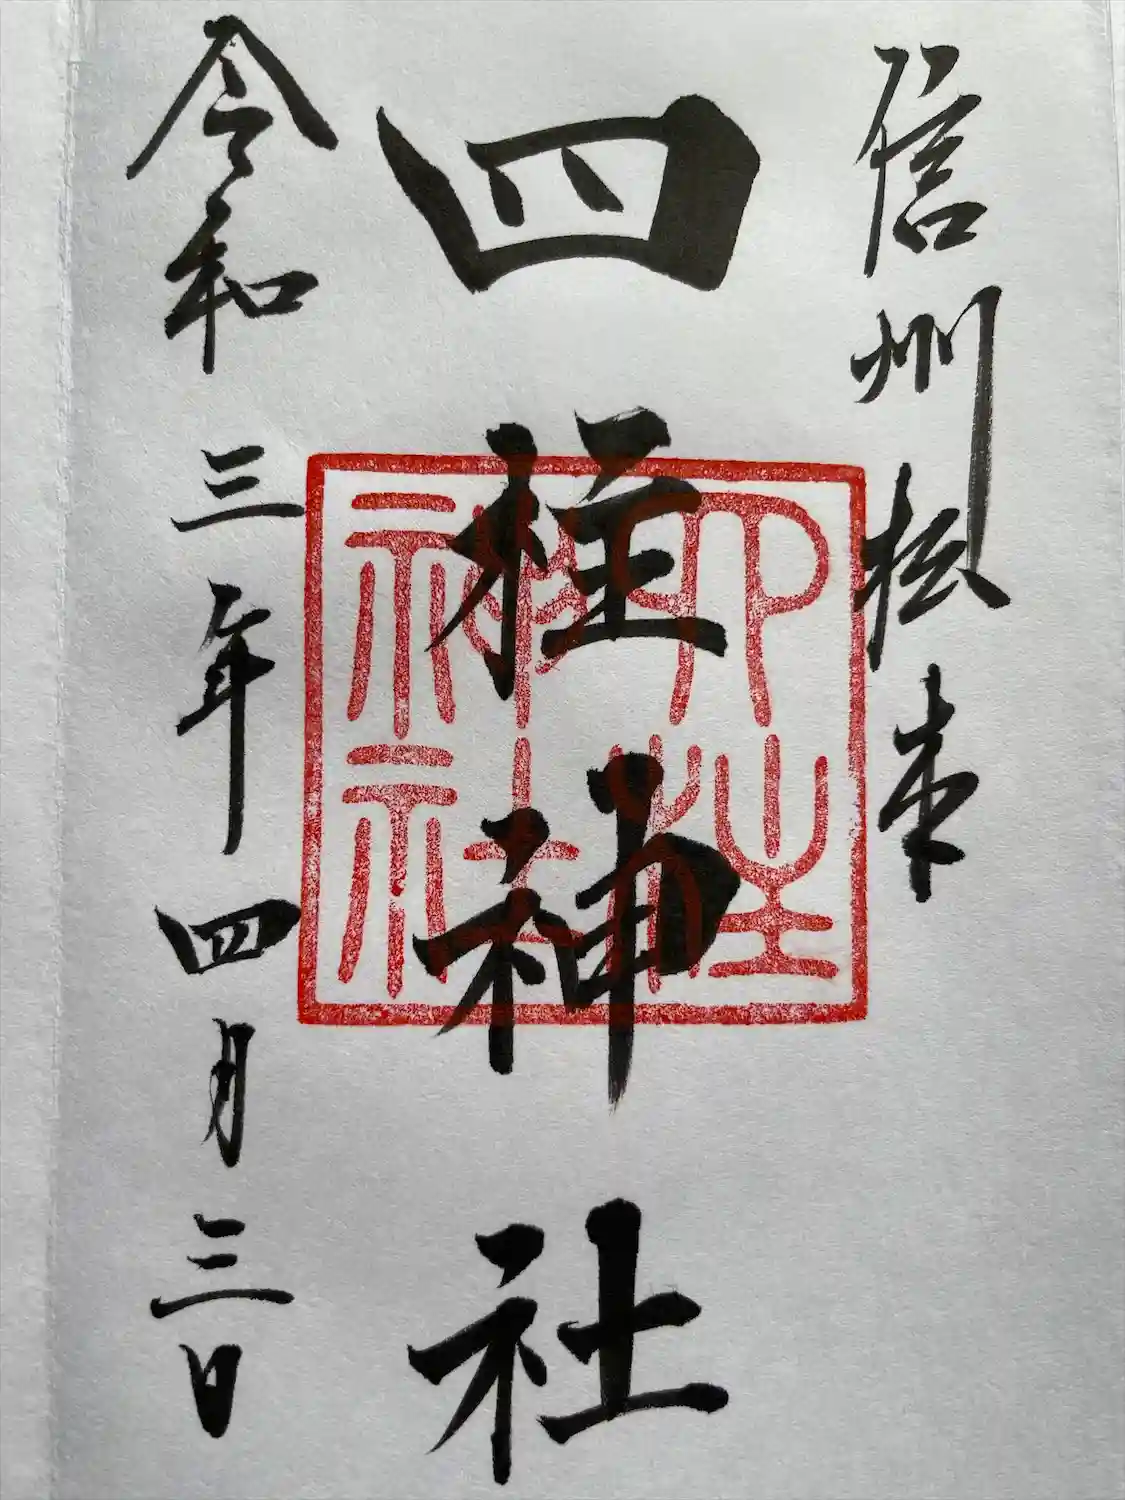 信州松本
四柱神社
四柱神社
令和三年四月三日